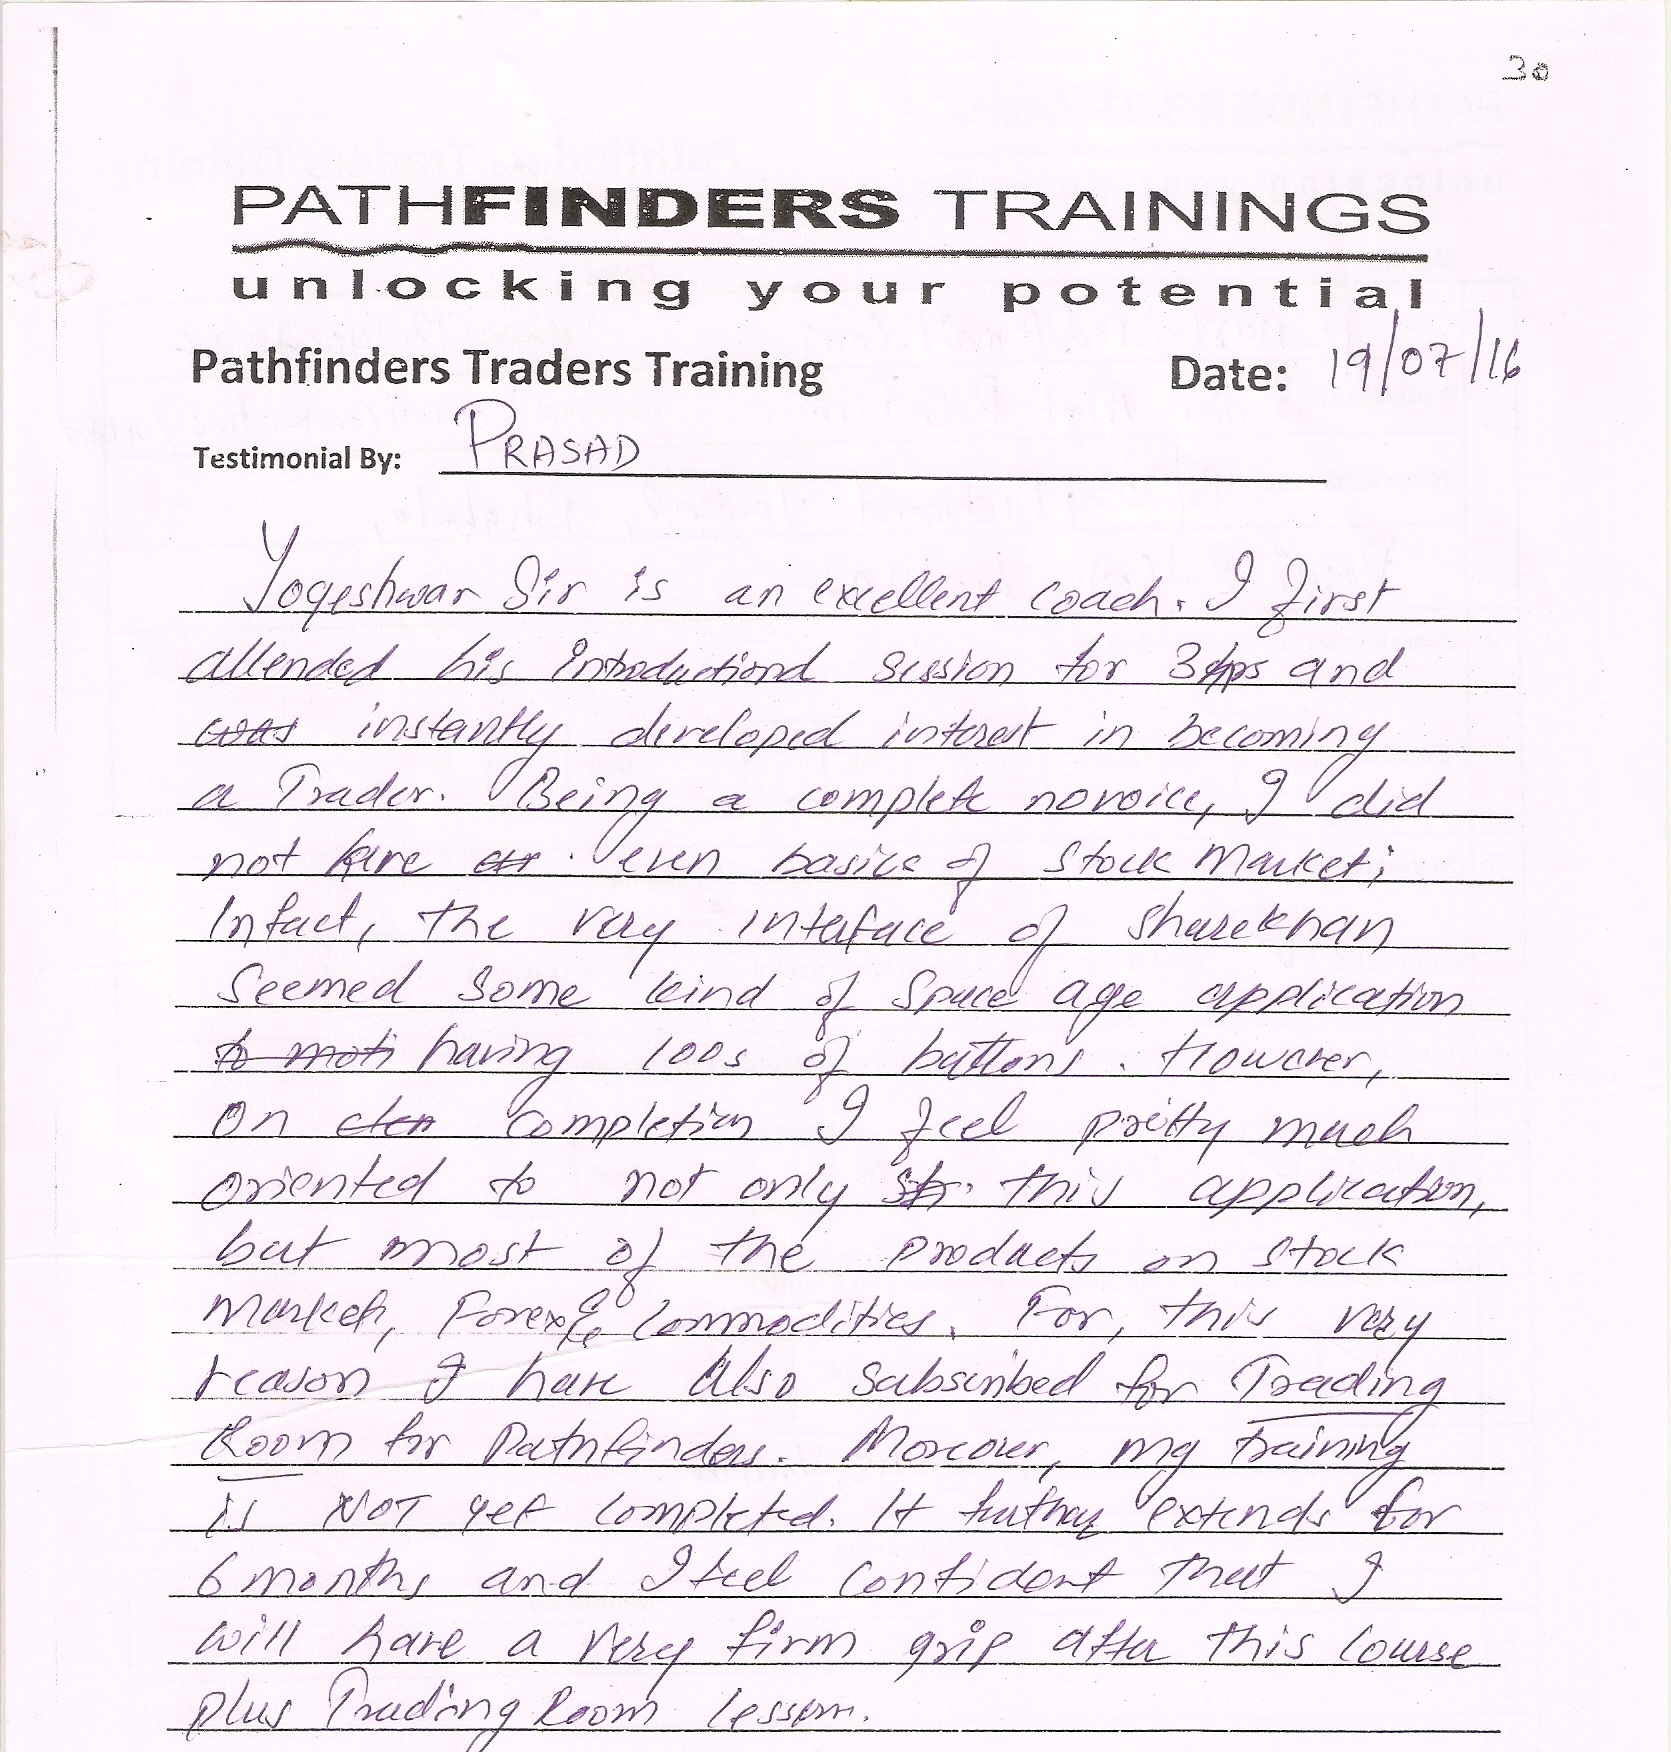 30
PATHFINDERS TRAININGS
unlocking your potential
Pathfinders Traders Training Date: 19/07/16
Testimonial By: PRASAD
Yogeshwar Sir is an excellent coach. I first
attended his introductiond session for 3 hrs and
was instantly developed interest in becoming
a Trader. Being a complete novoice, I did
not have even basics of stock Market;
Infact, the very interface of sharekhan
seemed some kind of space age application
to moti having 100s of buttons. However,
on completion I feel pretty much
oriented to not only this application,
but most of the products on stock
Market, Forex & Commodities. For, this very
reason I have also subscribed for Trading
Room for Pathfinders. Moreover, my training
is NOT yet completed. It furthar extends for
6 months and I feel confident that I
will have a very firm grip after this course
plus Trading Room lesson.